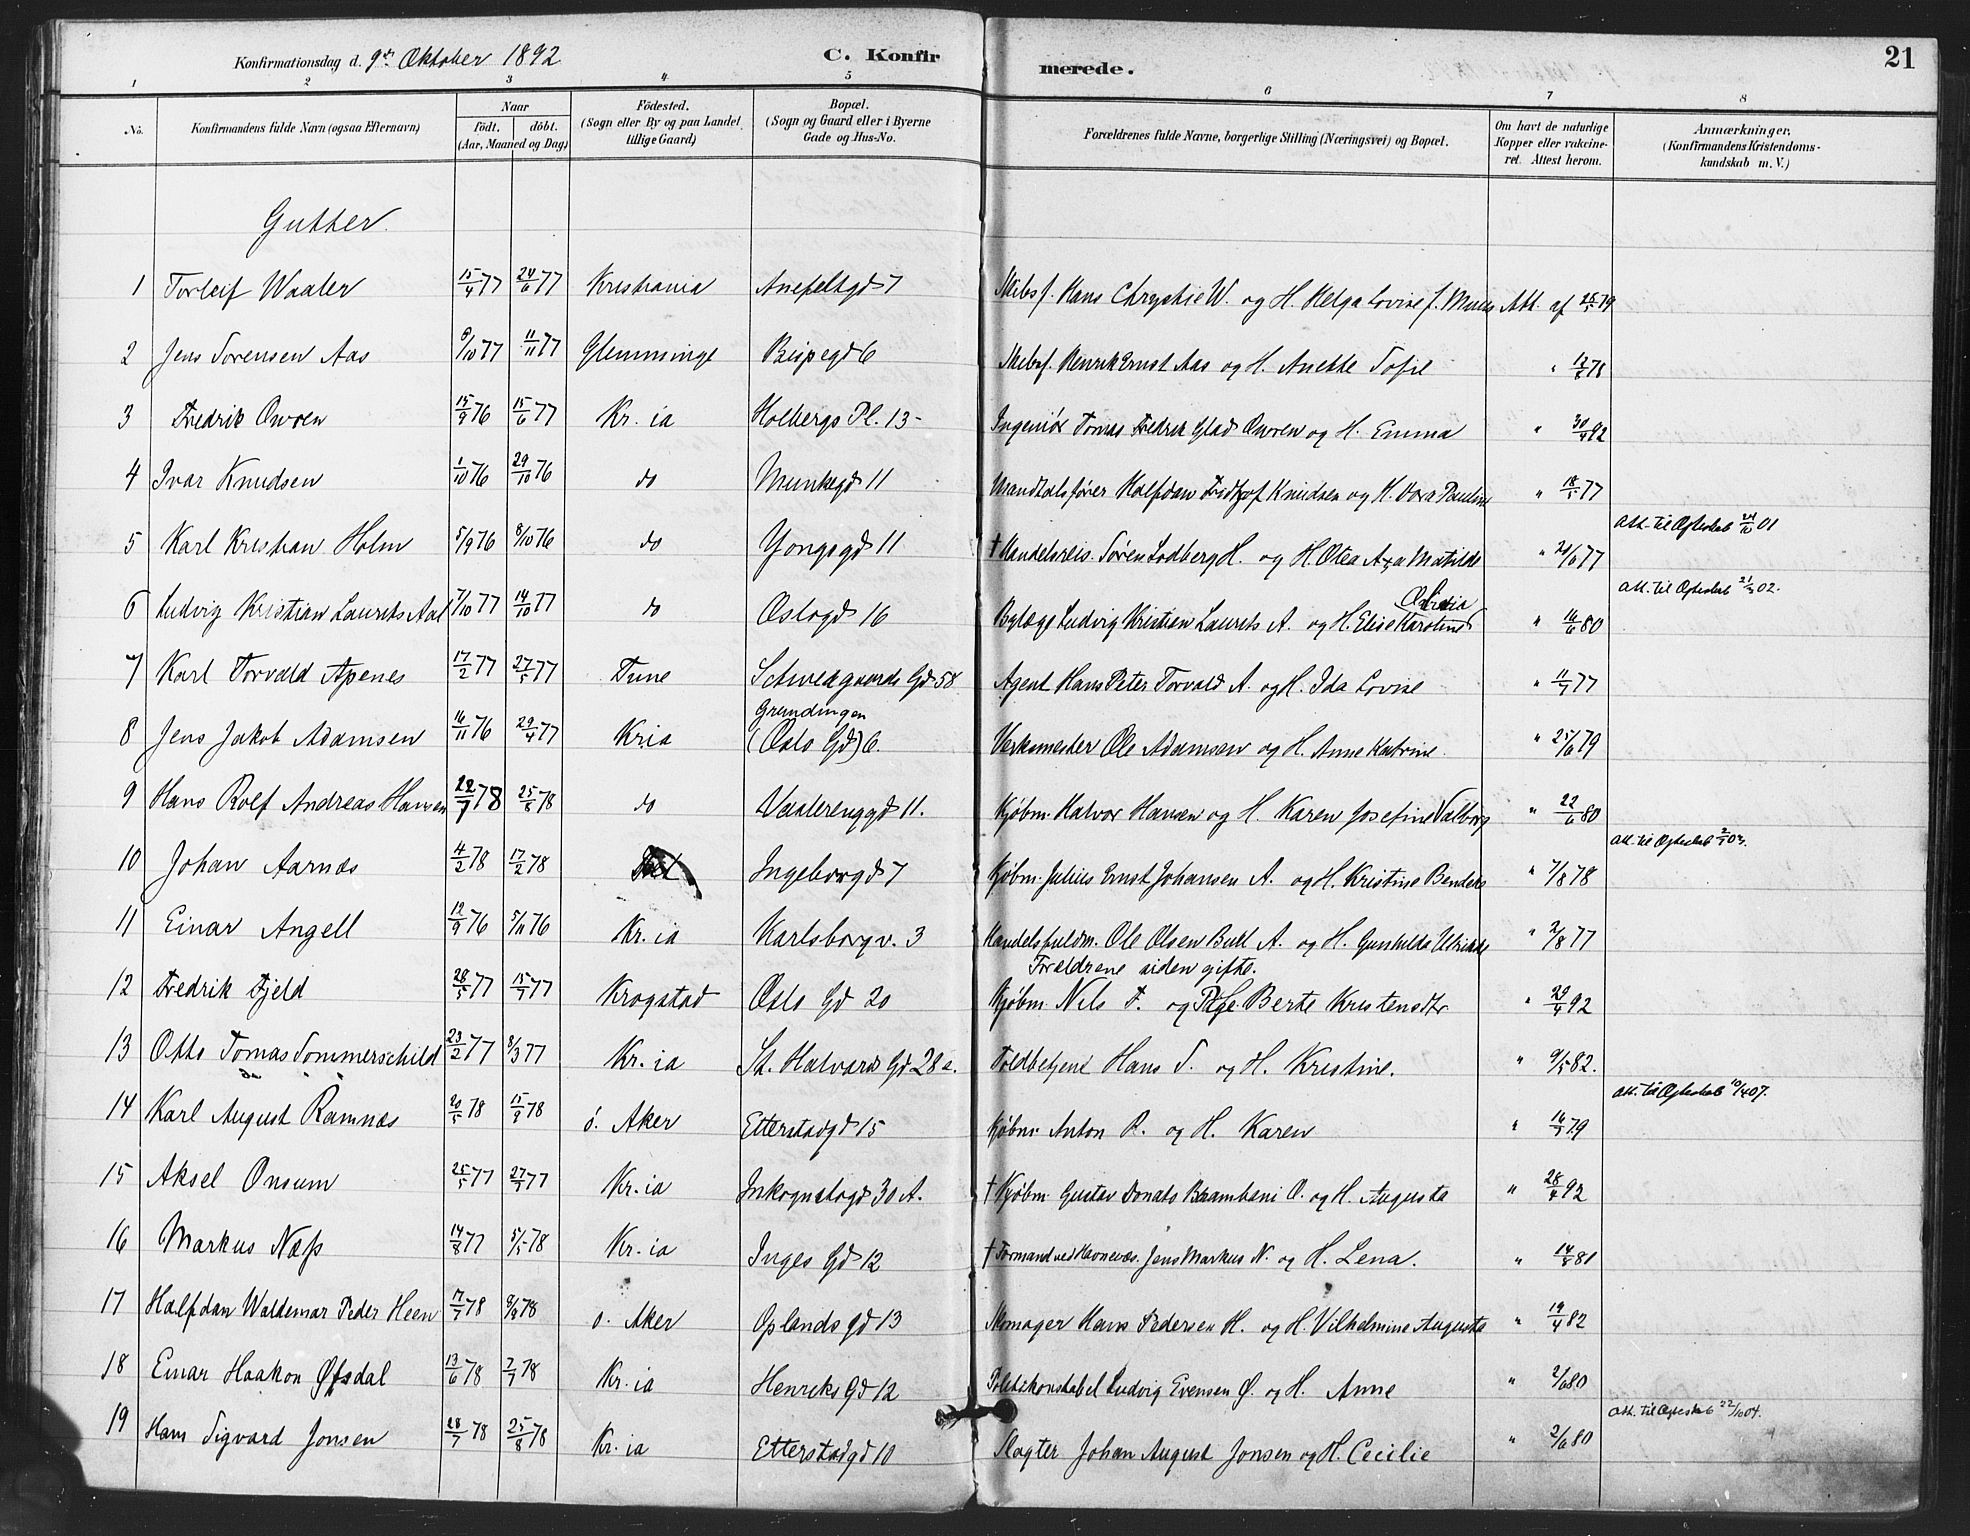 Konfirmationsdag d. 9de Oktober 1892 C. Konfir merede. 21
1 2 3 4 5 6 7 8
No. Konfirmandens fulde Navn (ogsaa Efternavn) Naar født. døbt. (Aar, Maaned og Dag) Fødested. (Sogn eller By og paa Landet tillige Gaard) Bopæl. (Sogn og Gaard eller i Byerne Gade og Hus-No. Forældrenes fulde Navne, borgerlige Stilling (Næringsvei) og Bopæl. Om havt de naturlige Kopper eller vakcineret. Attest herom. Anmærkninger, (Konfirmandens Kristendomskundskab m. V.)
Gutter.
1 Torleif Waaler 15/4 77 24/6 77 Kristiania Anepeltgd 7 Skibsf. Hans Chrystie W. og H. Helga Lovise f. Att. af 25/5 79
2 Jens Sørensen Aas 8/10 77 11/11 77 Glemminge Bispegd 6 Skibsf. Henrik Ernst Aas og H. Anette Sofie " 12/6 78
3 Fredrik Owren 15/9 76 15/6 77 Kr.ia Holbergs Pl. 13 Ingeniør Tomas Fredrik Glad Owren og H. Emma " 30/4 92
4 Ivar Knudsen 1/10 76 29/10 76 do Munkegd 11 Mandtalsfører Halfdan Fridtjof Knudsen og H. Dora Pauline " 18/5 77
5 Karl Kristian Holm 5/9 76 8/10 76 do Yongsgd 11 † Handelsreis. Søren Lodberg H. og H. Otea Axa Matilde " 20/6 77 Att. til Ægteskab 24/10 01
6 Ludvig Kristian Laurits Aal 7/10 77 14/10 77 do Oslogd 16 Bylæge Ludvig Kristian Laurits A. og H. Elise Karoline " 16/6 80 Att. til Ægteskab 21/3 02.
7 Karl Torvald Apenes 17/2 77 27/5 77 Tune Schweigaards Gd 58 Agent Hans Peter Torvald A. og H. Ida Lovise " 11/7 77
8 Jens Jakob Adamsen 16/11 76 29/4 77 Kria Grundingen (Oslo Gd) 6. Verksmester Ole Adamsen og H. Anne Katrine " 25/6 79
9 Hans Rolf Andreas Hansen 22/7 78 25/8 78 do Vaalerenggd 11. Kjøbm. Halvor Hansen og H. Karen Josefine Valborg " 22/6 80
10 Johan Aarnæs 4/2 78 17/2 78 Ingeborgd 7 Kjøbm. Julius Ernst Johansen A. og H. Kristine Benders " 7/8 78 Att. til Ægteskab 2/1 03.
11 Einar Angell 12/9 76 5/11 76 Kr.ia Karlsborgv. 3 Handelsfuldm. Ole Olsen Bull A. og H. Gunhilde Ulrikke " 2/8 77
12 Fredrik Fjeld 28/5 77 15/7 77 Krogstad Oslo Gd 20 Forældrene siden gifte. Kjøbm. Nils F. og Pige Berte Kristensdtr " 29/4 92
13 Otto Tomas Sommerschild 23/2 77 8/3 77 Kr.ia St. Halvards Gd 28 a. Toldbetjent Hans S. og H. Kristine. " 9/5 82.
14 Karl August Ramnæs 20/5 78 15/9 78 ø. Aker Etterstadgd 15 Kjøbm. Anton R. og H. Karen " 16/7 79 Att. til Ægteskab 10/4 07.
15 Aksel Onsum 25/5 77 27/7 77 Kr.ia Inkognitogd 30 A. † Kjøbm. Gustav Donats Brambani O. og H. Augusta " 28/4 92
16 Markus Næss 14/8 77 5/5 78 Kr.ia Inges Gd 12 † Formand ved Havnevæs. Jens Markus N. og H. Lena. " 14/5 81
17 Halfdan Waldemar Peder Heen 17/7 78 9/9 78 ø. Aker Oplands Gd 13 Skomager Hans Pedersen H. og H. Vilhelmine Augusta " 19/4 82
18 Einar Haakon Øfsdal 13/6 78 7/7 78 Kr.ia Henriks Gd 12 Politikonstabel Ludvig Evensen Ø. og H. Anne " 2/6 80
19 Hans Sigvard Jonsen 28/7 78 25/8 78 Kr.ia Etterstadgd 10 Slagter Johan August Jonsen og H. Cecilie " 2/6 80 Att. til Ægteskab 22/10 04.